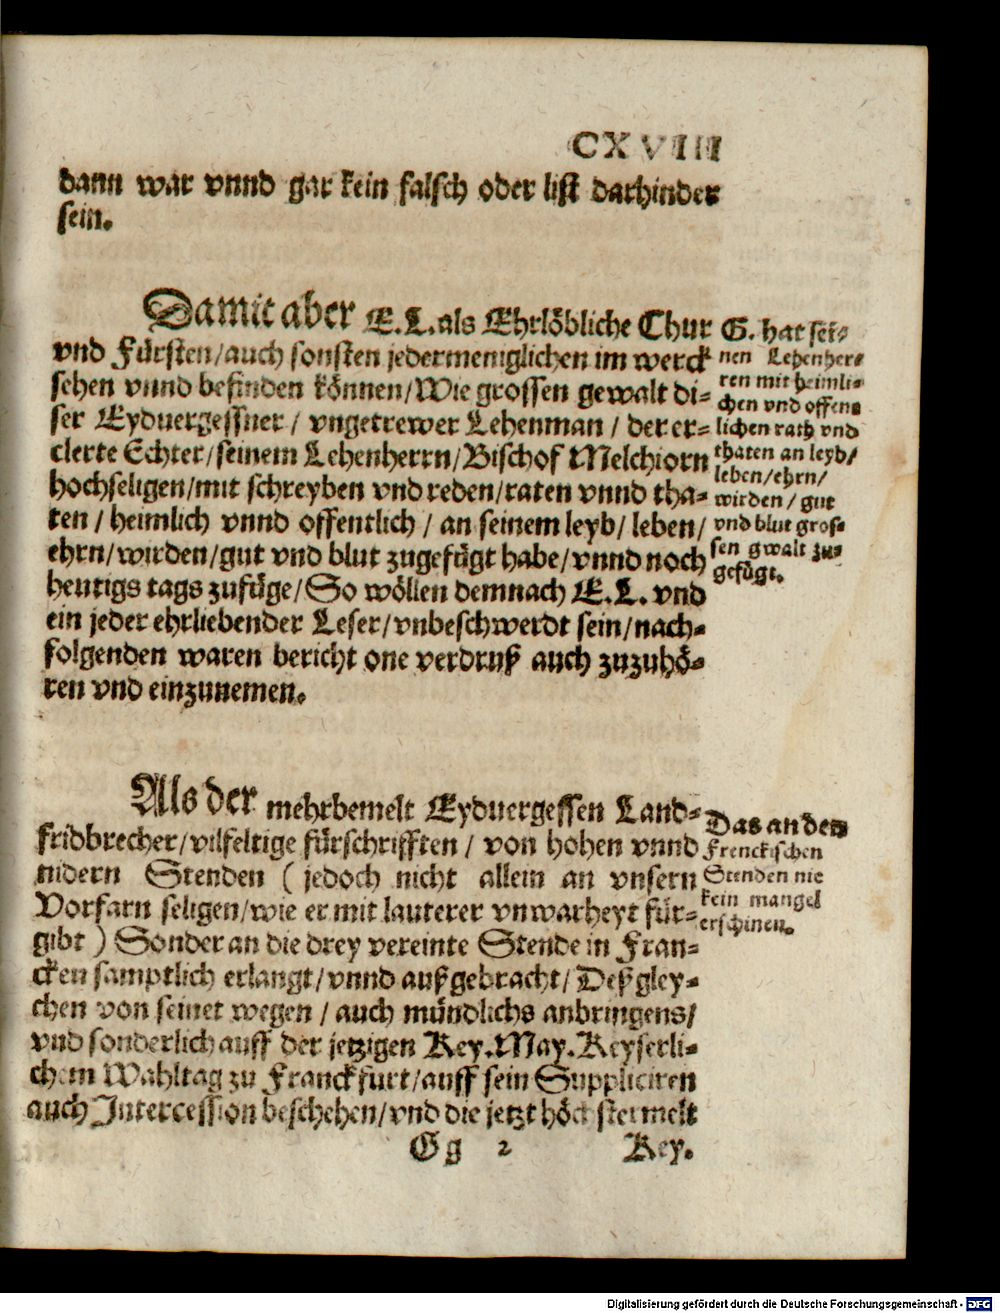 CXVIII
dann war vnnd gar kein falsch oder list darhinder
sein.
Damit aber E.L. als Ehrlöbliche Chur
vnd Fürsten/auch sonsten jedermeniglichen im werck
sehen vnnd befinden können/Wie grossen gewalt di-
ser Eyduergessner/ vngetrewer Lehenman/ der er-
clerte Echter/seinem Lehenherrn/Bischof Melchiorn
hochseligen/mit schreyben vnd reden/raten vnnd tha-
ten/ heimlich vnnd offentlich/ an seinem leyb/ leben/
ehrn/wirden/gut vnd blut zugefügt habe/vnnd noch
heutigs tags zufüge/So wöllen demnach E.L. vnd
ein jeder ehrliebender Leser/vnbeschwerdt sein/nach-
folgenden waren bericht one verdruß auch zuzuhö-
ren vnd einzunemen.
G. hat sei-
nen Lehenher-
ren mit heimli-
chen vnd offen-
lichen rath vnd
thaten an leyb/
leben/ehrn/
wirden/ gut
vnd blut gros-
sen gwalt zu-
gefügt.
Als der mehrbemelt Eyduergessen Land-
fridbrecher/vilfeltige fürschrifften/ von hohen vnnd
nidern Stenden ( jedoch nicht allein an vnsern
Vorfarn seligen/wie er mit lauterer vnwarheyt für-
gibt ) Sonder an die drey vereinte Stende in Fran-
cken samptlich erlangt/vnnd außgebracht/ Deßgley-
chen von seinet wegen/ auch mündlichs anbringens/
vnd sonderlich auff der jetzigen Key.May.Keyserli-
chem Wahltag zu Franckfurt/auff sein Suppliciren
auch Intercession beschehen/vnd die jetzt höchstermelt
Das an den
Frenckischen
Stenden nie
kein mangel
erschinen.
Gg 2 Key.
Digitalisierung gefördert durch die Deutsche Forschungsgemeinschaft - DFG